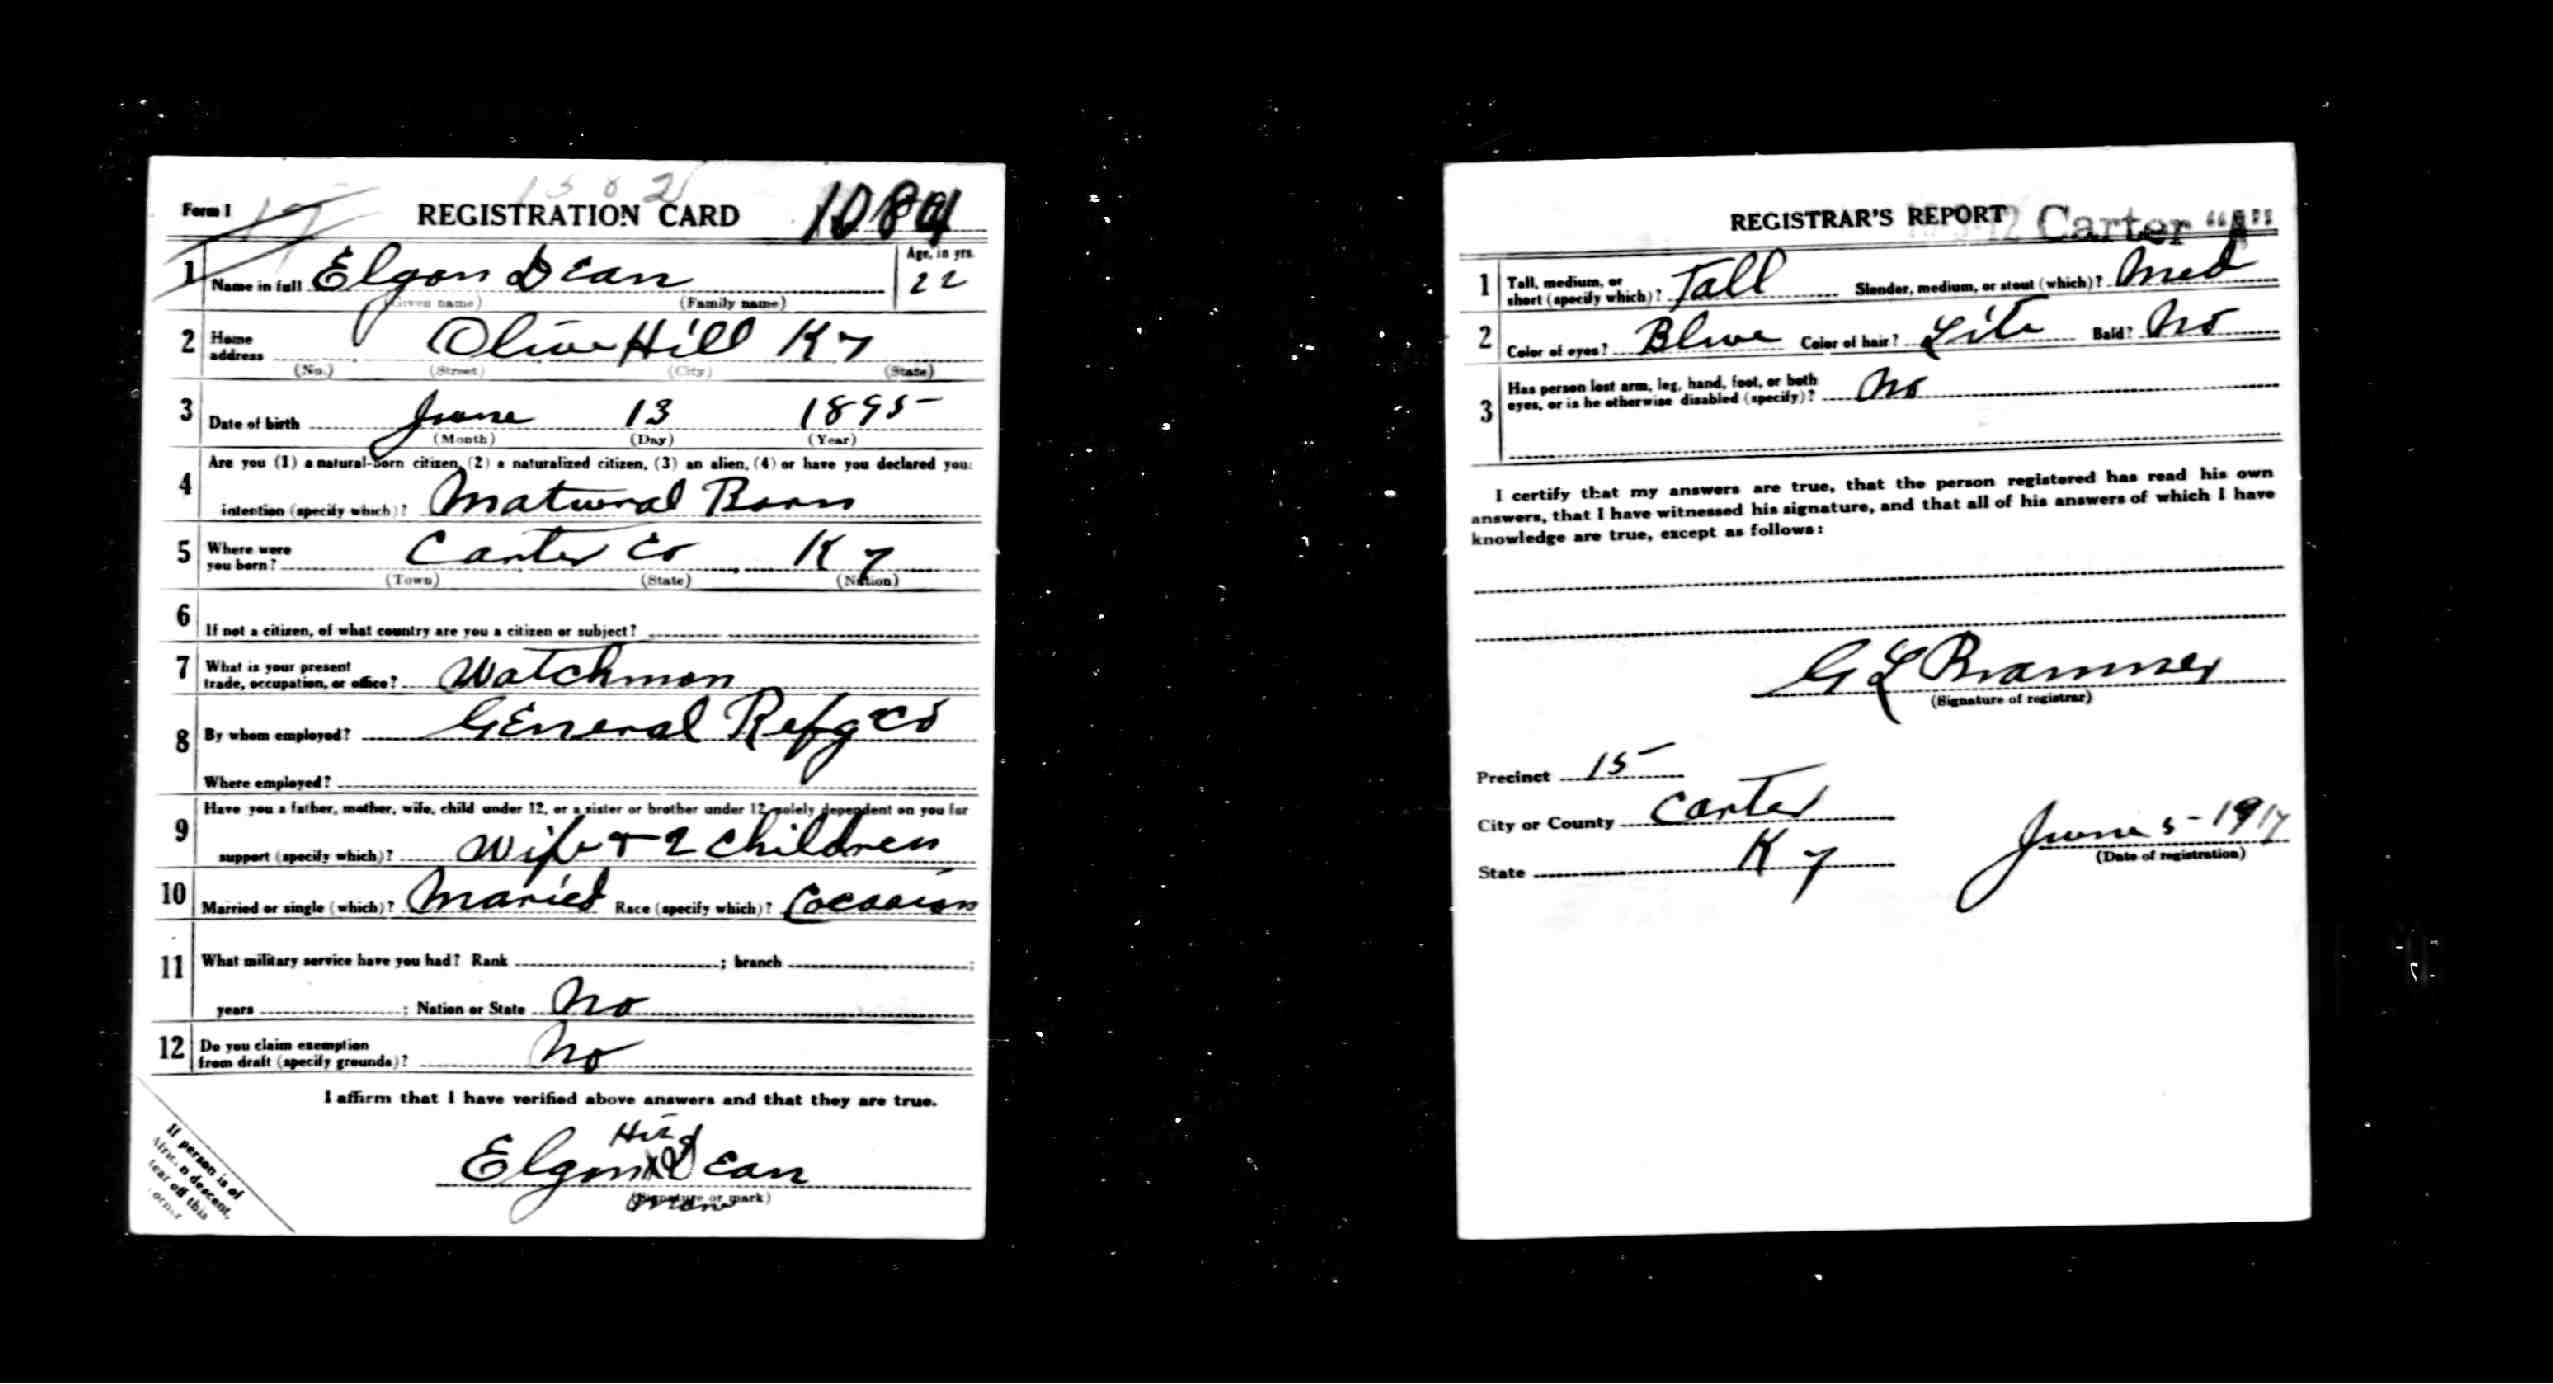 Form 1
REGISTRATION CARD
1 Name in full Elgon Dean Age, in yrs. 22
(Given name) (Family name)
2 Home address Olive Hill Ky
(No.) (Street) (City) (State)
3 Date of birth June 13 1895
(Month) (Day) (Year)
4 Are you (1) a natural-born citizen, (2) a naturalized citizen, (3) an alien, (4) or have you declared your
intention (specify which)? Natural Born
5 Where were you born? Carter Co Ky
(Town) (State) (Nation)
6 If not a citizen, of what country are you a citizen or subject?
7 What is your present trade, occupation, or office? Watchman
8 By whom employed? General Refg Co
Where employed?
9 Have you a father, mother, wife, child under 12, or a sister or brother under 12, solely dependent on you for
support (specify which)? Wife + 2 children
10 Married or single (which)? Maried Race (specify which)? Cocasion
11 What military service have you had? Rank ; branch ;
years ; Nation or State No
12 Do you claim exemption from draft (specify grounds)? No
I affirm that I have verified above answers and that they are true.
His
Elgon x Dean
(Signature or mark)
If person is of
descent,
tear off this
corner
REGISTRAR'S REPORT
Carter "A"
1 Tall, medium, or short (specify which)? Tall Slender, medium, or stout (which)? Med
2 Color of eyes? Blue Color of hair? Lite Bald? No
3 Has person lost arm, leg, hand, foot, or both
eyes, or is he otherwise disabled (specify)? No
I certify that my answers are true, that the person registered has read his own
answers, that I have witnessed his signature, and that all of his answers of which I have
knowledge are true, except as follows:
G L Brammer
(Signature of registrar)
Precinct 15
City or County Carter
State Ky
June 5-1917
(Date of registration)